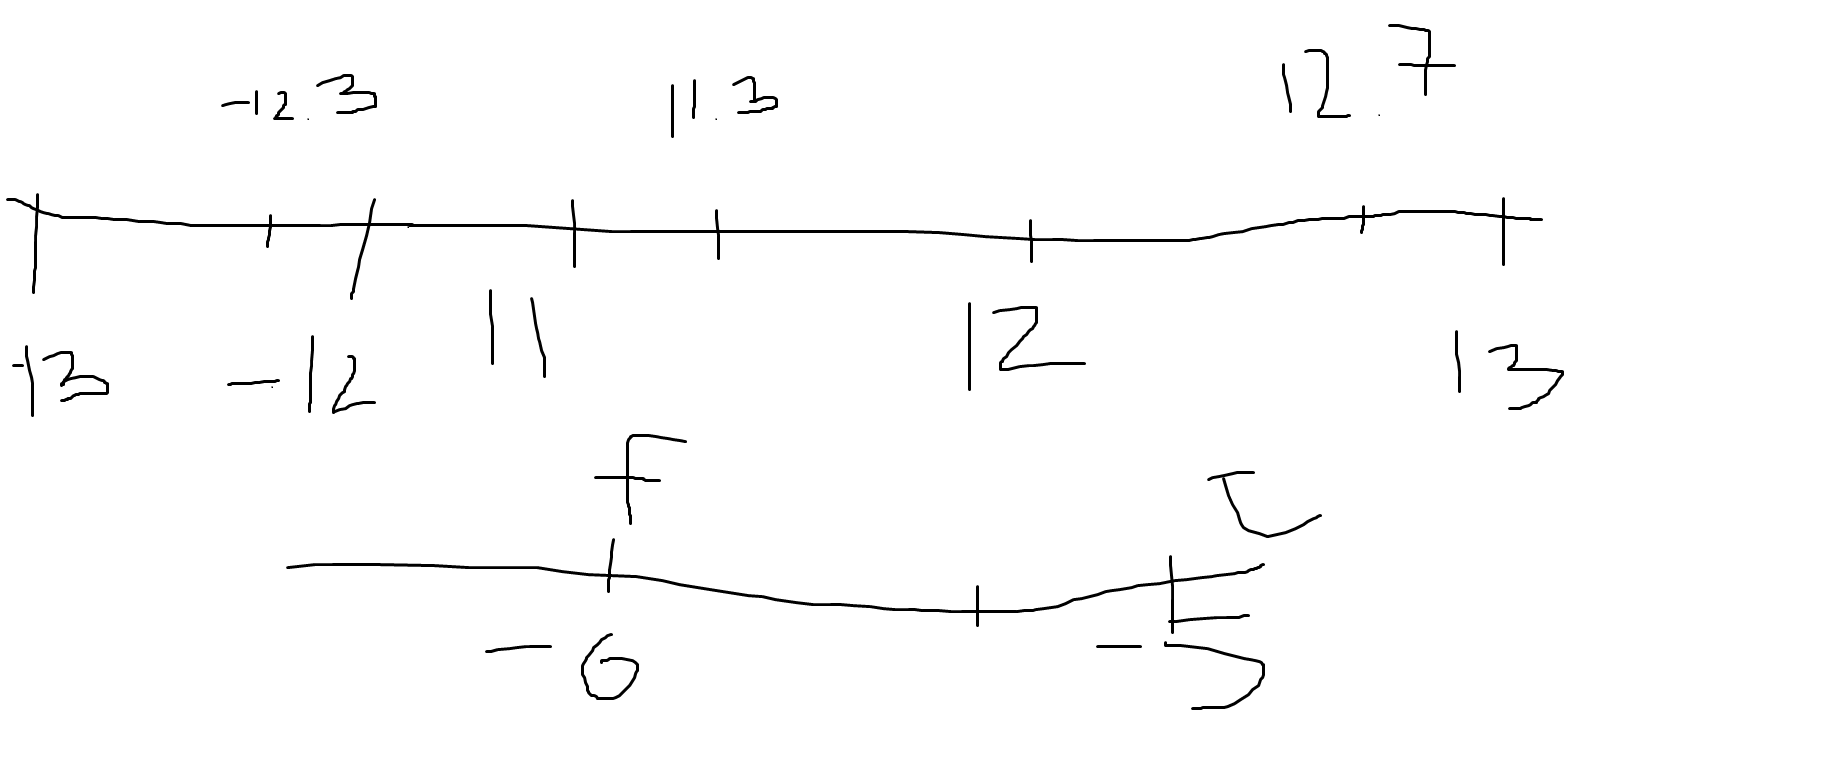 -12.3 11.3 12.7
-13 -12 11 12 13
F C
-6 -5